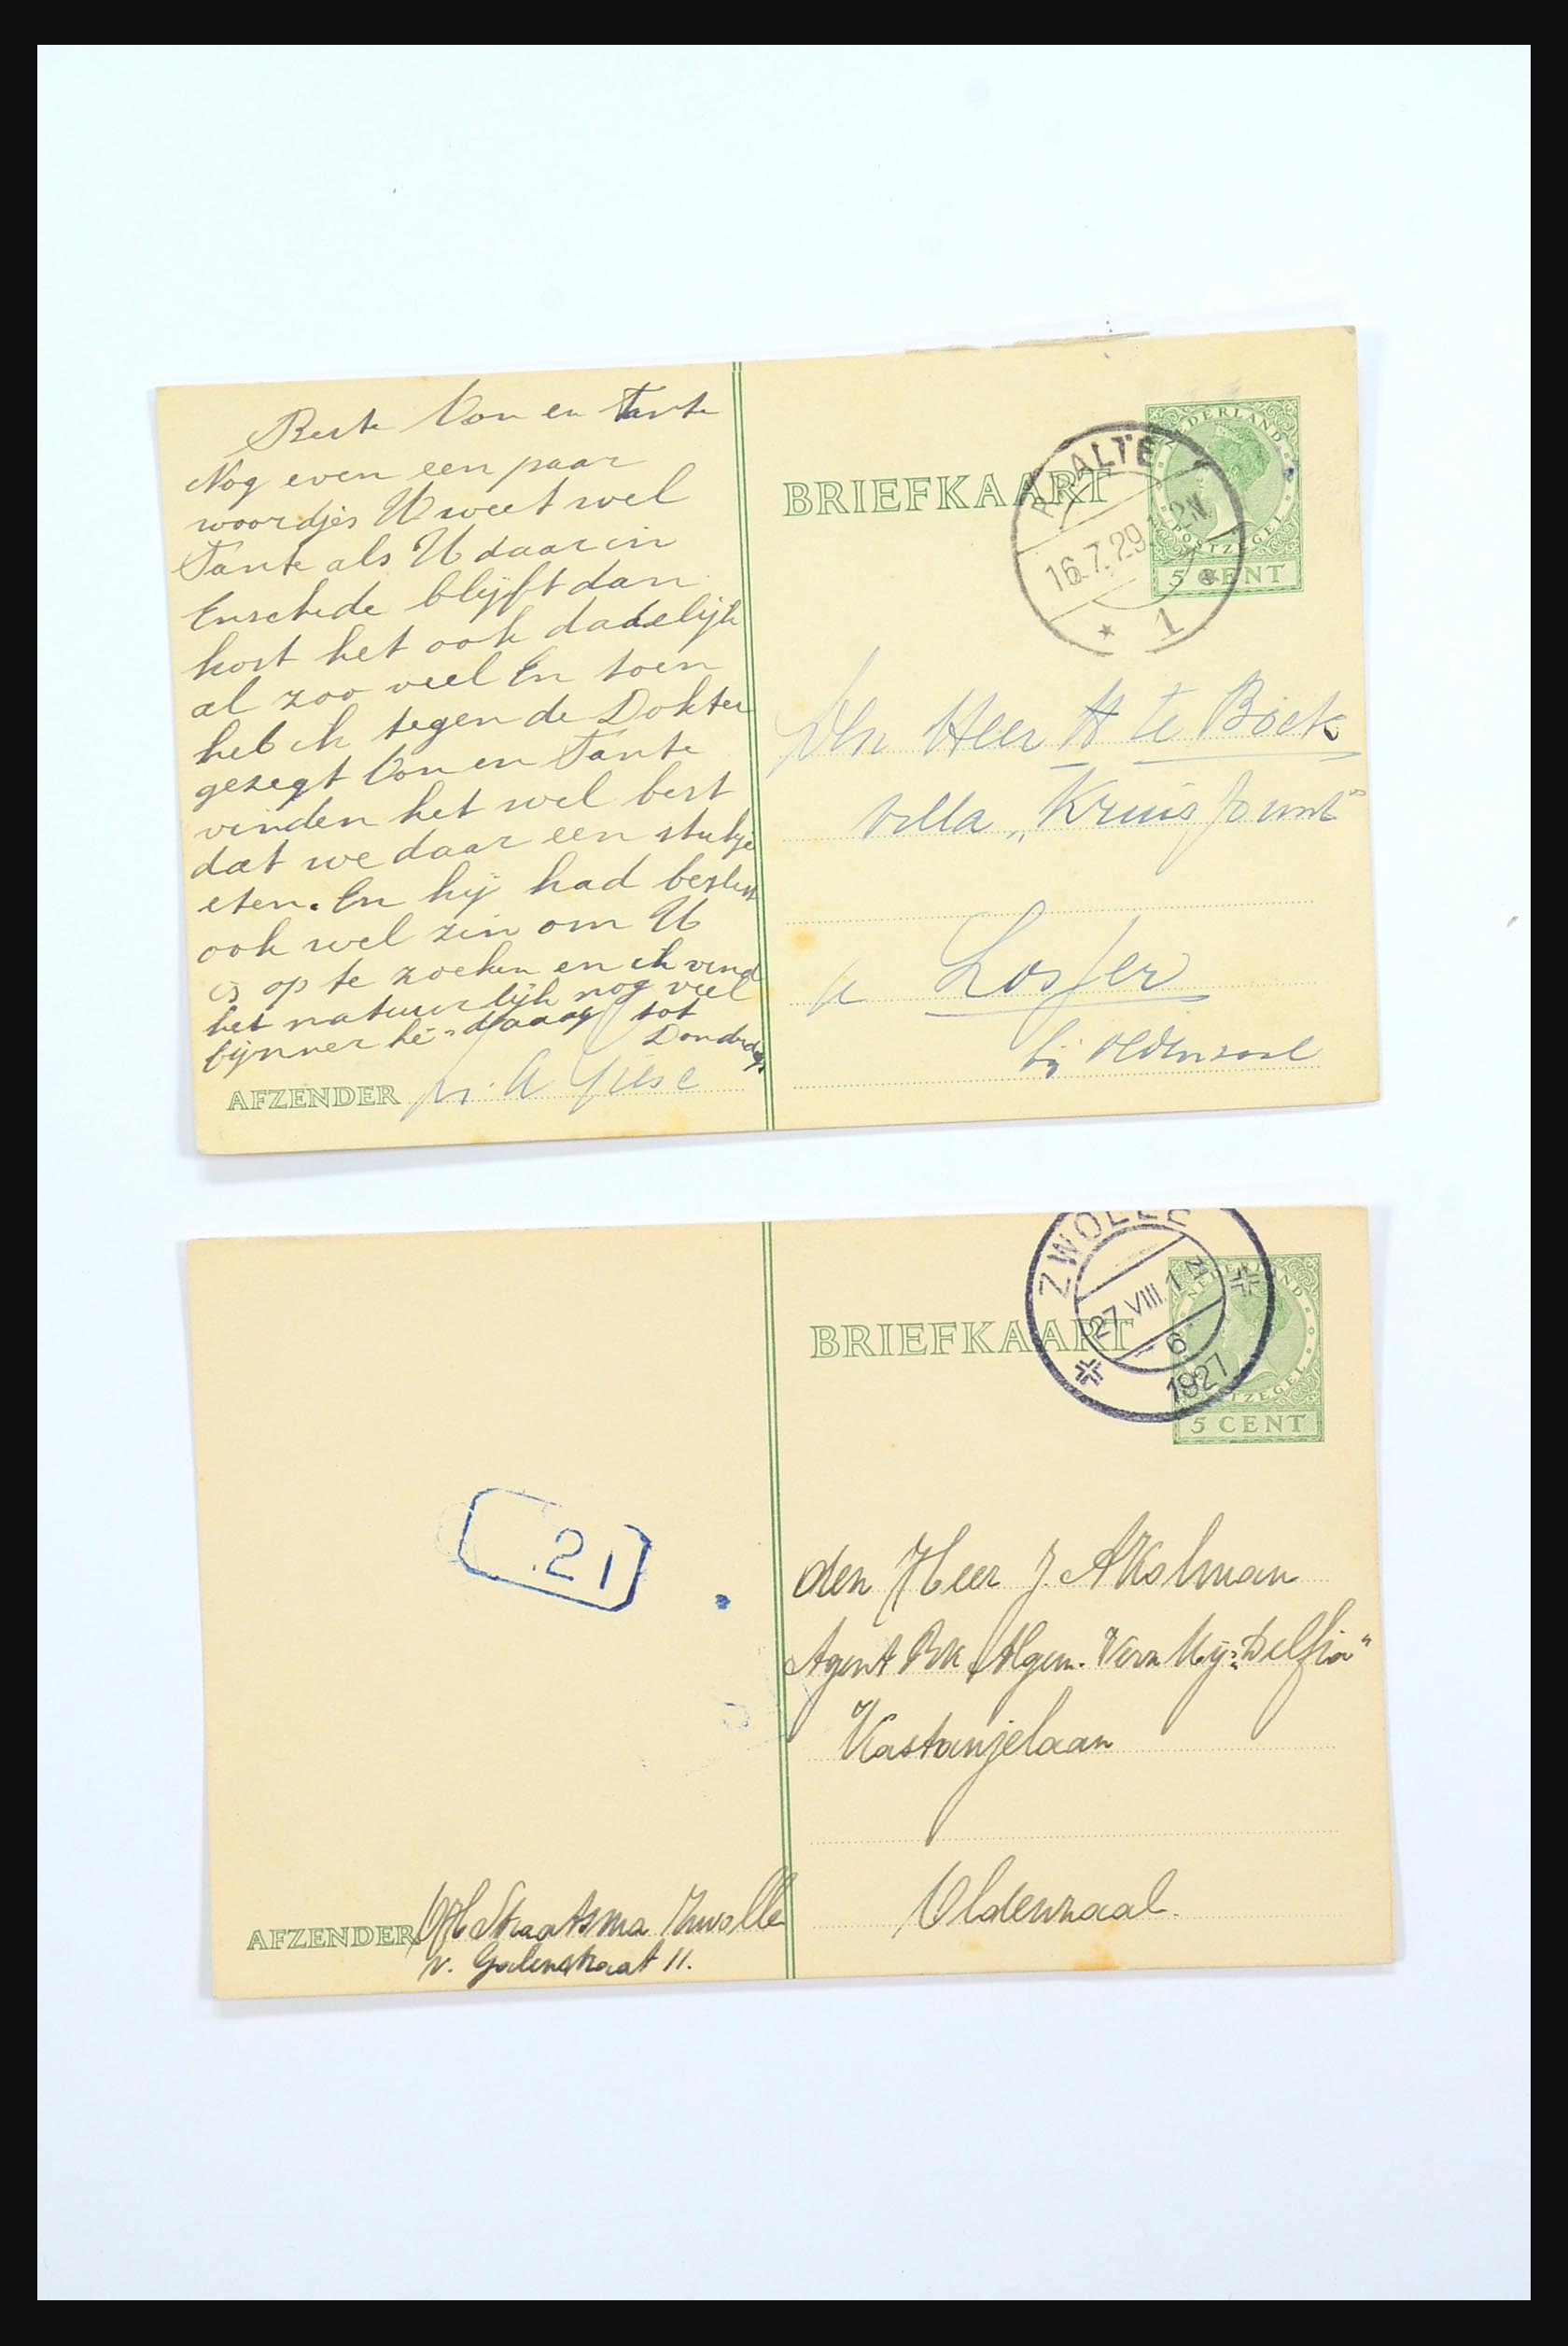 Beste Oom en Tante
Nog even een paar
woordjes U weet wel
Tante als U daar in
Enschede blijft dan
kost het ook dadelijk
al zoo veel En toen
heb ik tegen de Dokter
gezegt Oom en Tante
vinden het wel best
dat we daar een stukje
eten. En hij had beslist
ook wel zin om U
is op te zoeken en ik vind
het natuurlijk nog veel
fijnner hé daaag tot
Donderdag
AFZENDER A Giese
BRIEFKAART
NEDERLAND
POSTZEGEL
5 CENT
RAALTE
16.7.29 2N
1
Den Heer H te Boek
Villa „Kruispunt"
te Losser
bij Oldenzaal
BRIEFKAART
NEDERLAND
POSTZEGEL
5 CENT
ZWOLLE
27 VIII.1
6
1927
21
den Heer J. A Kolman
Agent Algem. Verz Mij: „Delfia"
Kastanjelaan
Oldenzaal.
AFZENDER Straatsma Zwolle
v. Galenstraat 11.